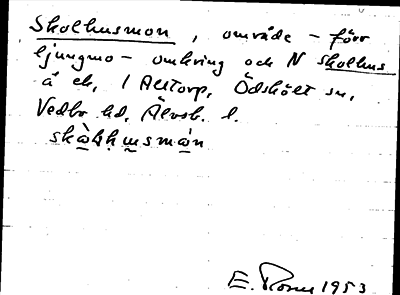 Skolhusmon, område - förr
ljungmo - omkring och N skolhus
å ek. 1 Alltorp, Ödskölt sn,
Vedbo hd, Älvsb. l.
E. 1953